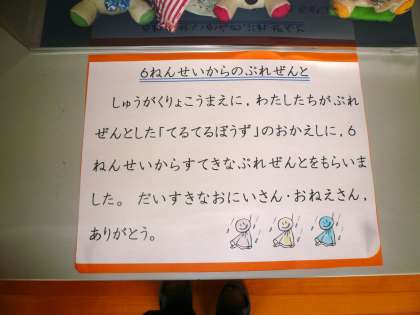 6ねんせいからのぷれぜんと
しゅうがくりょこうまえに，わたしたちがぷれ
ぜんとした「てるてるぼうず」のおかえしに，6
ねんせいからすてきなぷれぜんとをもらいま
した。だいすきなおにいさん・おねえさん，
ありがとう。